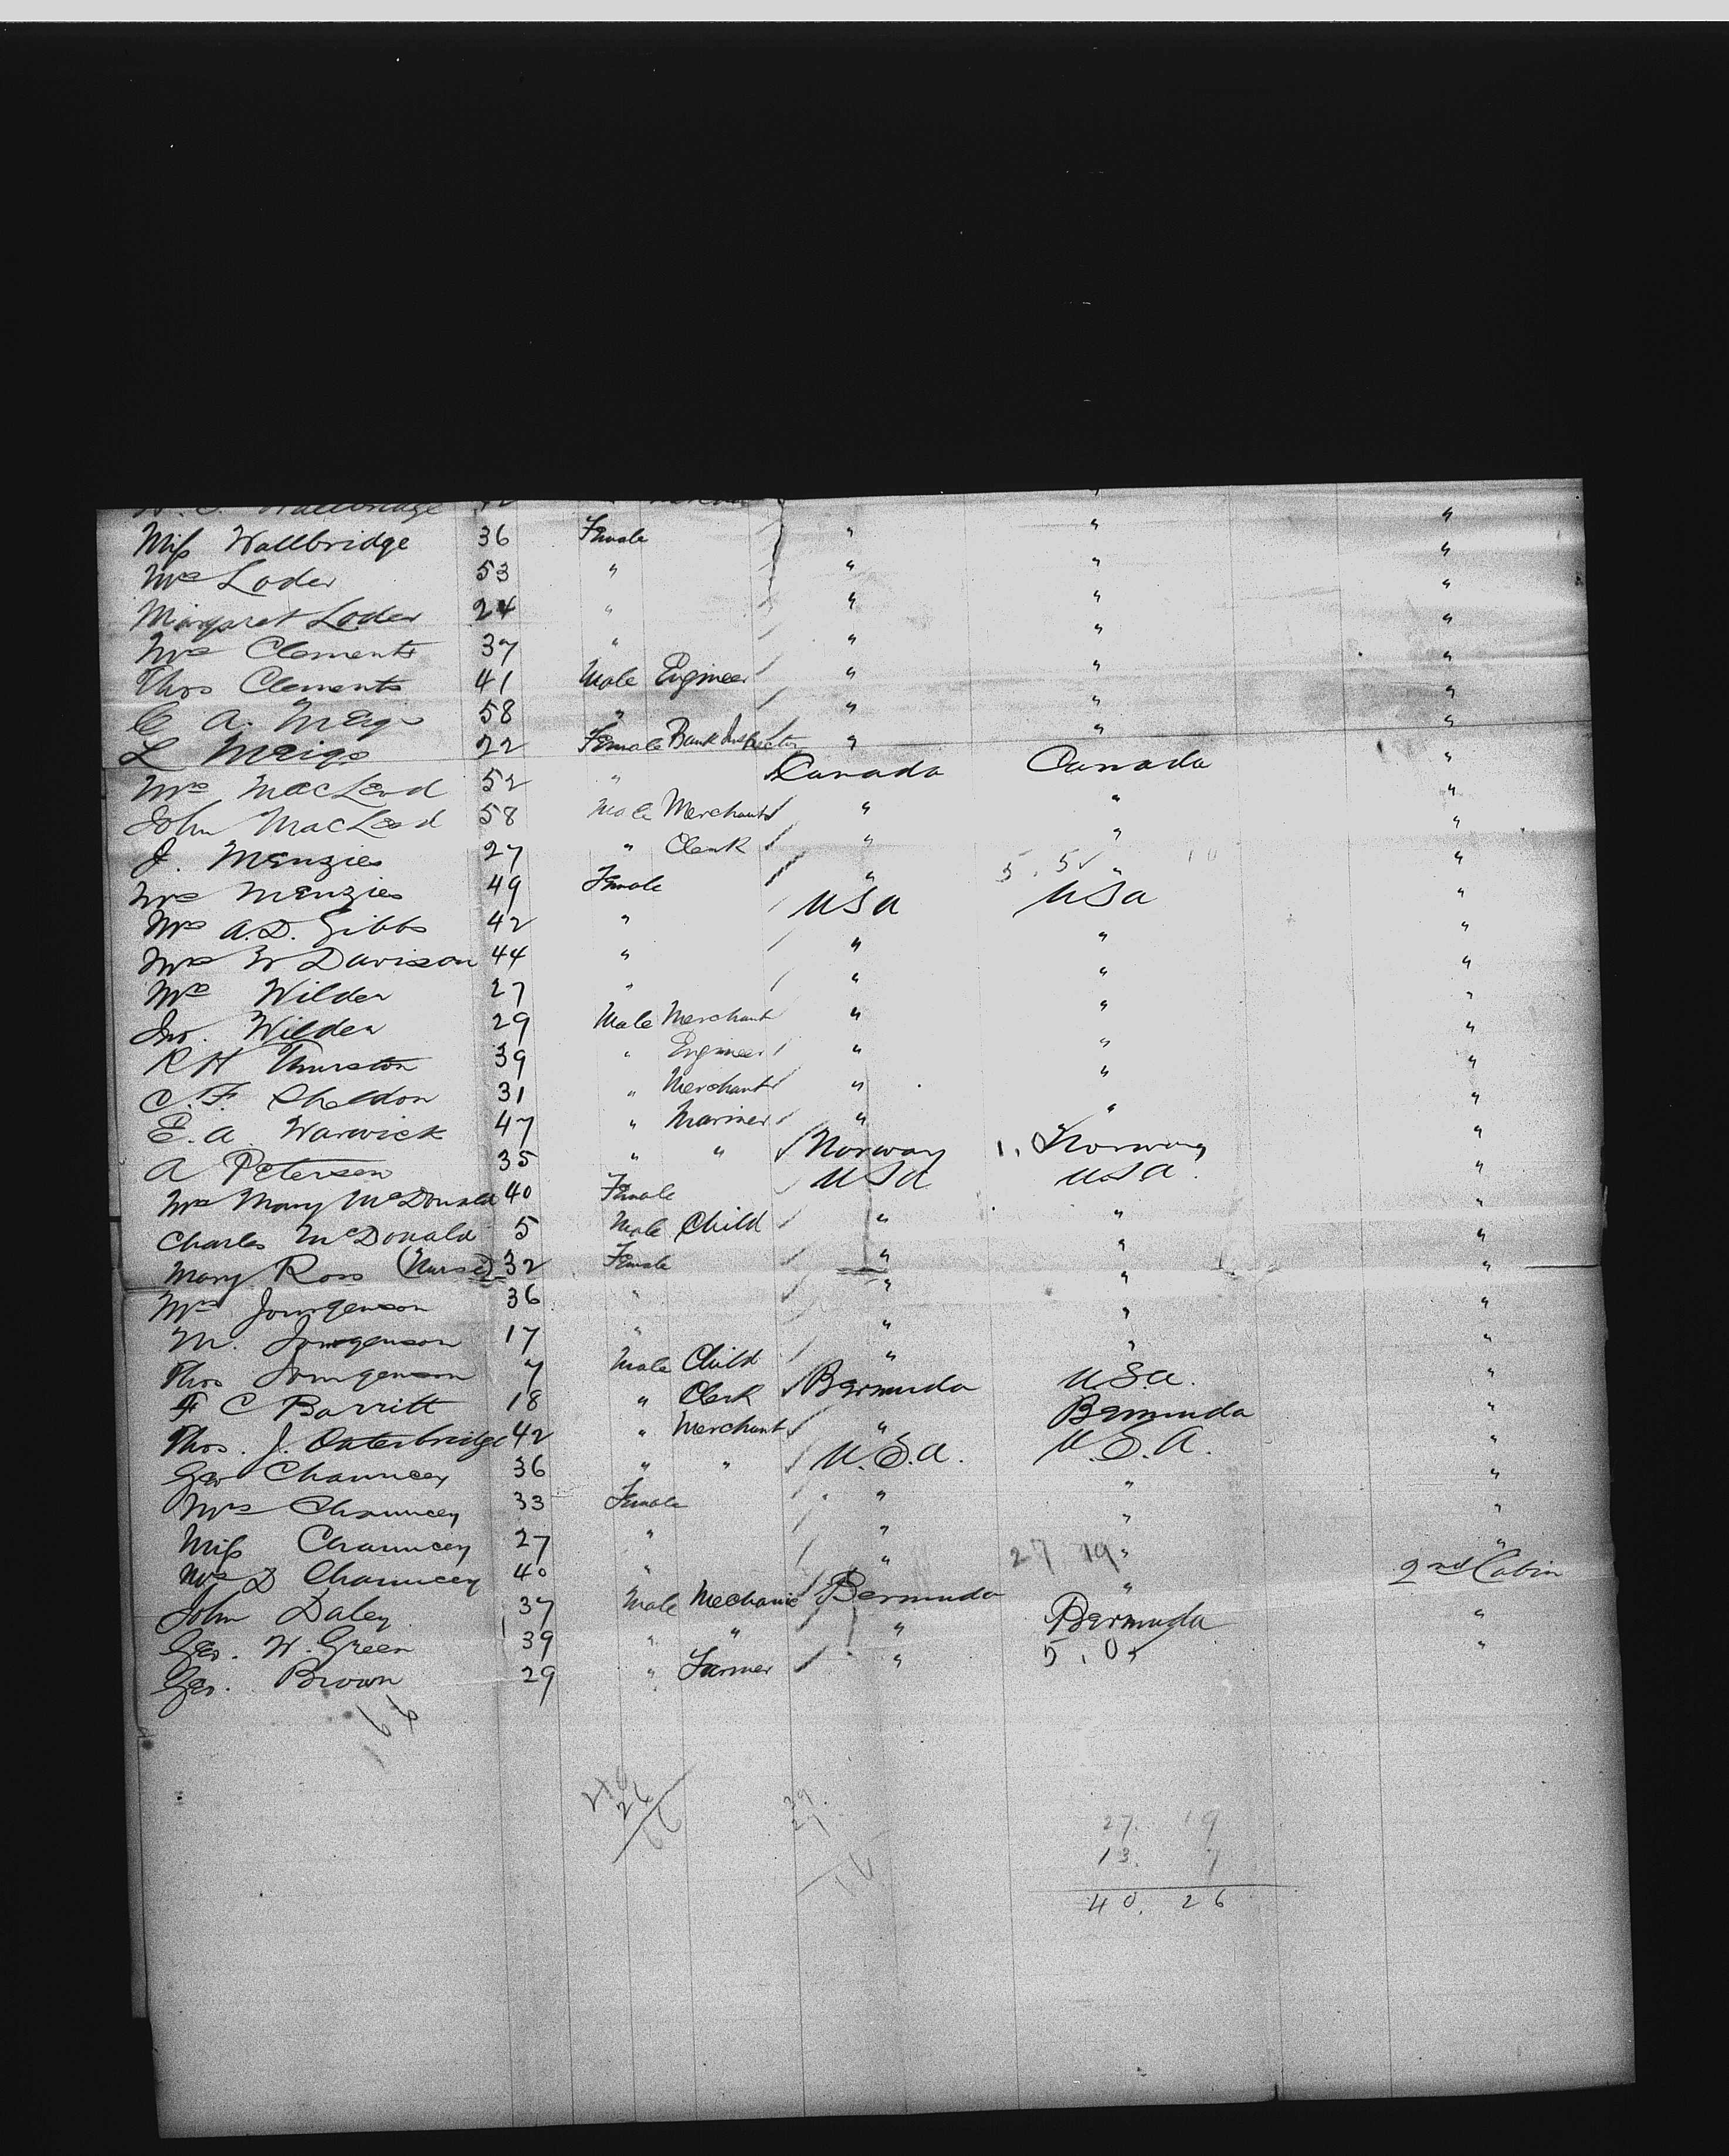 Miss Wallbridge 36 Female " " "
Mrs Loder 53 " " " "
Margaret Loder 24 " " " "
Mrs Clements 37 " " " "
Thos Clements 41 Male Engineer " " "
C. A. Meigs 58 " " " "
L Meigs 22 Female Bank Inspector " " "
Mrs MacLeod 52 " Canada Canada "
John MacLeod 58 Male Merchant " " "
J. Menzies 27 " Clerk " " "
Mrs Menzies 49 Female " " "
Mrs A.D. Gibbs 42 " USA USA "
Mrs W Davison 44 " " " "
Mrs Wilder 27 " " " "
Jno. Wilder 29 Male Merchant " " "
R H Thurston 39 " Engineer " " "
C. F. Sheldon 31 " Merchant " " "
E. A. Warwick 47 " Mariner " " "
A Petersen 35 " " Norway 1. Norway "
Mrs Mary McDonald 40 Female USA USA. "
Charles McDonald 5 Male Child " " "
Mary Ross (Nurse) 32 Female " " "
Mrs Jourgenson 36 " " " "
M. Jourgenson 17 " " " "
Thos Jourgenson 7 Male Child " " "
F C Barritt 18 " Clerk Bermuda U.S.A. "
Thos. J. Outerbridge 42 " Merchant " Bermuda "
Geo Chauncey 36 " " U.S.A. U.S.A. "
Mrs Chauncey 33 Female " " "
Miss Chauncey 27 " " " "
Mrs D Chauncey 40 " " 27 19 " "
John Daley 37 Male Mechanic Bermuda " 2nd Cabin
Geo. W. Green 39 " " " Bermuda "
Geo. Brown 29 " Farmer " 5.0 "
27. 19
13. 7
40. 26